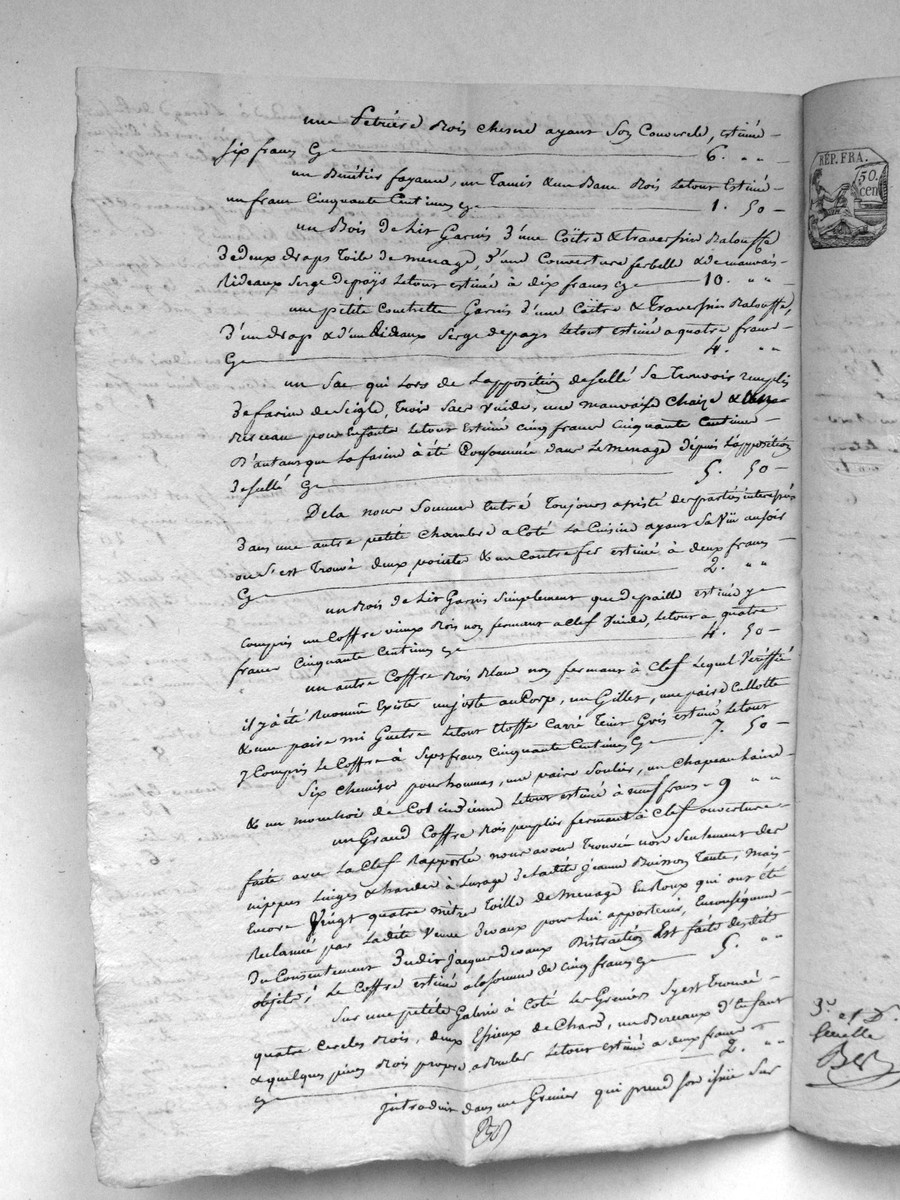 une Petriere Bois chesne ayant son couvercle, estimé
six francs Cy 6. " "
un Benétier fayance, un Tamis & un Banc Bois Letout Estimé
un franc Cinquante Centimes Cy 1. 50
un Bois de Lit Garnis d'une Coître & traversin Balouffe
de deux draps Toile de menage, d'une Couverture ferbelle & de mauvais
Rideaux Serge depaÿs Letout estimé à dix francs Cy 10. " "
une petite Couchette Garnis d'une Coitre & Traversin Balouffe,
d'un drap & d'un Rideaux Serge depays Letout estimé a quatre franc
Cy 4. " "
un Sac qui Lors de Lapposition descellé Se Trouvoit remplis
de farine de Seigle, Trois Sacs Vuide, une mauvaise Chaize &
Berseau pour Enfants Letout Estimé Cinq francs Cinquante Centimes
D'autant que La farine à été Consommée dans Le menage depuis Lapposition
descellé Cy 5. 50
Dela nous Sommes Entré Toujours assisté des parties interessés
dans une autre petite Chambre a Coté La Cuisine ayant Sa Vüe au soir
ou S'est Trouvé deux & un Contrefer estimé à deux francs
Cy 2. " "
un Bois de Lit Garnis Simplement que depaille estimé y
Compris un Coffre vieux Bois non fermant a Clef Vuide, Letout a quatre
francs Cinquante Centimes Cy 4. 50
un autre Coffre Bois Blanc non fermant à Clef Lequel Vérifié
il y a été Reconnu Exister un juste au Corp, un Gillet, une paire Cullotte
& une paire mi Guetre Letout Etoffe Carré Teint Gris estimé Letout
y Compris Le Coffre à Sept francs Cinquante Centimes Cy 7. 50
Six Chemises pour hommes, une paire Soulier, un Chapeau Laine
& un mouchoir de Col indienne Letout estimé à neuf francs 9 " "
un Grand Coffre Bois peuplier fermant à Clef ouverture
faite avec La Clef Rapportée nous avons Trouvée non Seulement des
nippes Linges & hardes à Lusage de Ladite Jeanne Buisson Tante, Mais
Encore Vingt quatre mètre Toille de menage En Roux qui ont été
Reclamé par Ladite Veuve Devaux pour Lui appartenir, En conséquence
du Consentement dudit Jacques Devaux Distraction Est faite desdits
objets; Le Coffre estimé a la somme de Cinq francs Cy 5. " "
Sur une petite Galrie à Coté Le Greniers S'y est trouvée
quatre Cercles Bois, deux Essieux de Chard, un Berceaux d'Enfant
& quelques pieces Bois propre a Bruler Letout estimé a deux francs
Cy 2. " "
Introduit dans un Grenier qui prend Son issüe Sur
RÉP. FRA.
50
cen
3e et D.